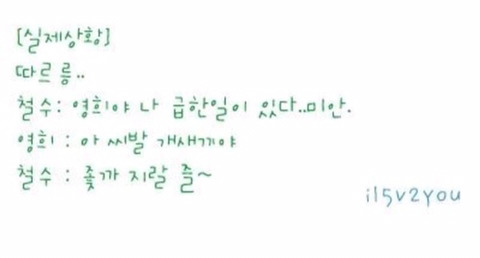 [실제상황]
따르릉..
철수: 영희야 나 급한일이 있다..미안.
영희 : 아 씨발 개새끼야
철수 : 좆까 지랄 즐~
il5v2you